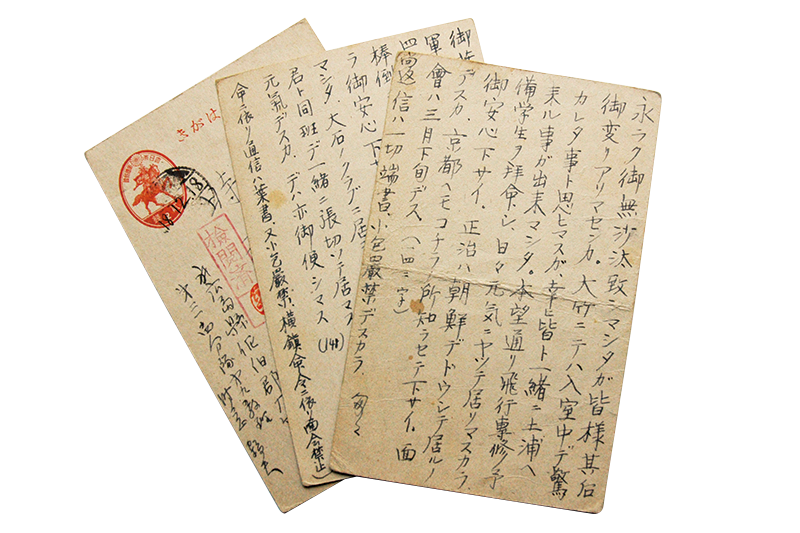 永ラク御無沙汰致シマシタガ皆様其后
御変リアリマセンカ。大竹ニテハ入室中デ驚
カレタ事ト思ヒマスガ、幸ヒ皆ト一緒ニ土浦ヘ
来ル事が出来マシタ。本望通リ飛行専修ノ予
備学生ヲ拝命シ、日々元気ニヤツテ居リマスカラ
御安心下サイ。正治ハ朝鮮デドウシテ居ルノ
デスカ、京都ヘモコチラノ所知ラセテ下サイ。面
會ハ三月下旬デス。(一四二字)
尚返信ハ一切端書、小包嚴禁デスカラ 匆々
御
軍
四
棒倒
ラ御安心下
マシタ。大石ノクラブニ居マス
君ト同班デ一緒ニ張切ツテ居マス
元氣デスカ。デハ亦御便シマス (148)
命ニ依リ通信ハ葉書、又小包嚴禁、横鎮命令ニ依リ面会禁止)
きがは
検閲済
広島縣佐伯郡